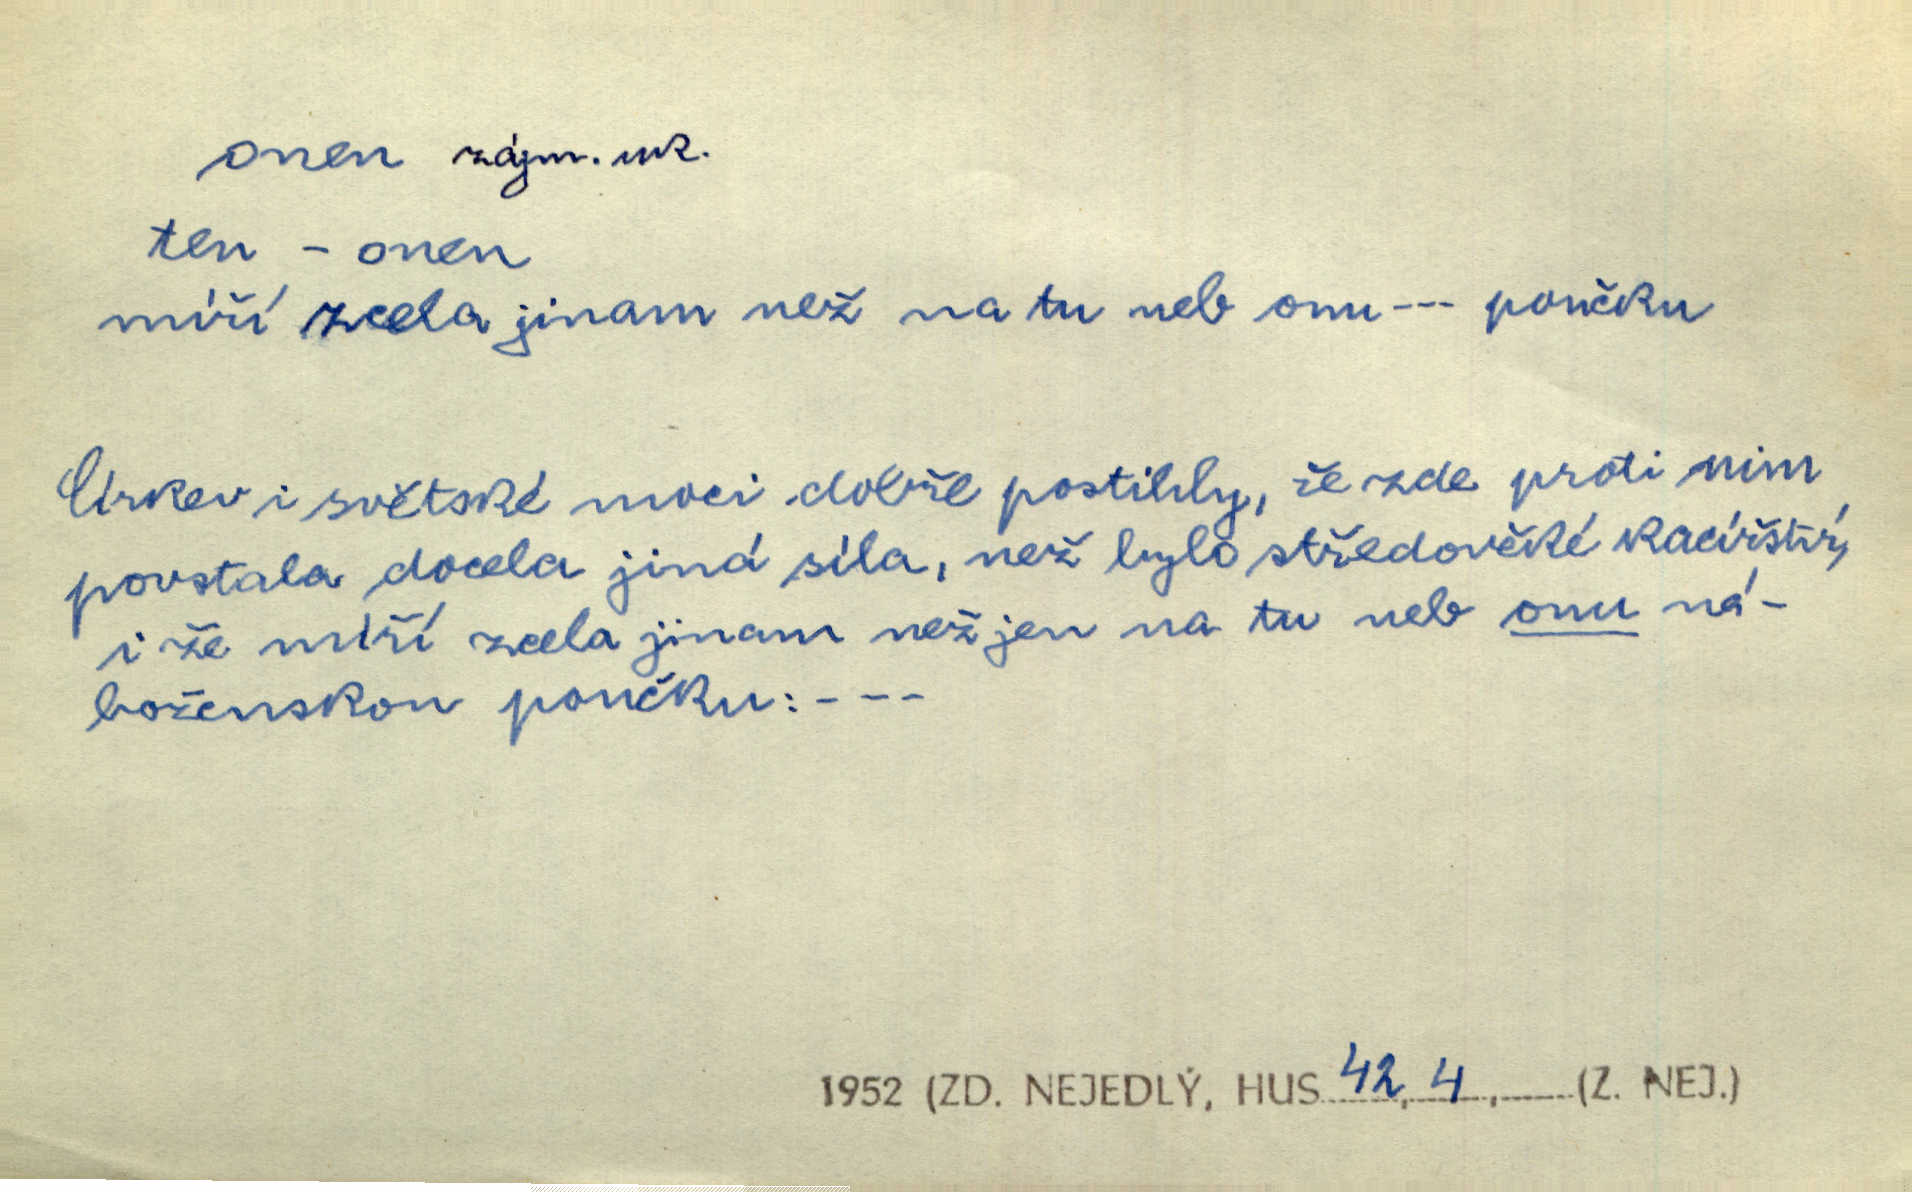 onen zájm. uk.
ten - onen
míří zcela jinam než na tu neb onu --- poučku
Církev i světské moci dobře postihly, že zde proti nim
povstala docela jiná síla, než bylo středověké kacířství,
i že míří zcela jinam než jen na tu neb onu ná-
boženskou poučku: ---
1952 (ZD. NEJEDLÝ, HUS 42, 4, (Z. NEJ.)